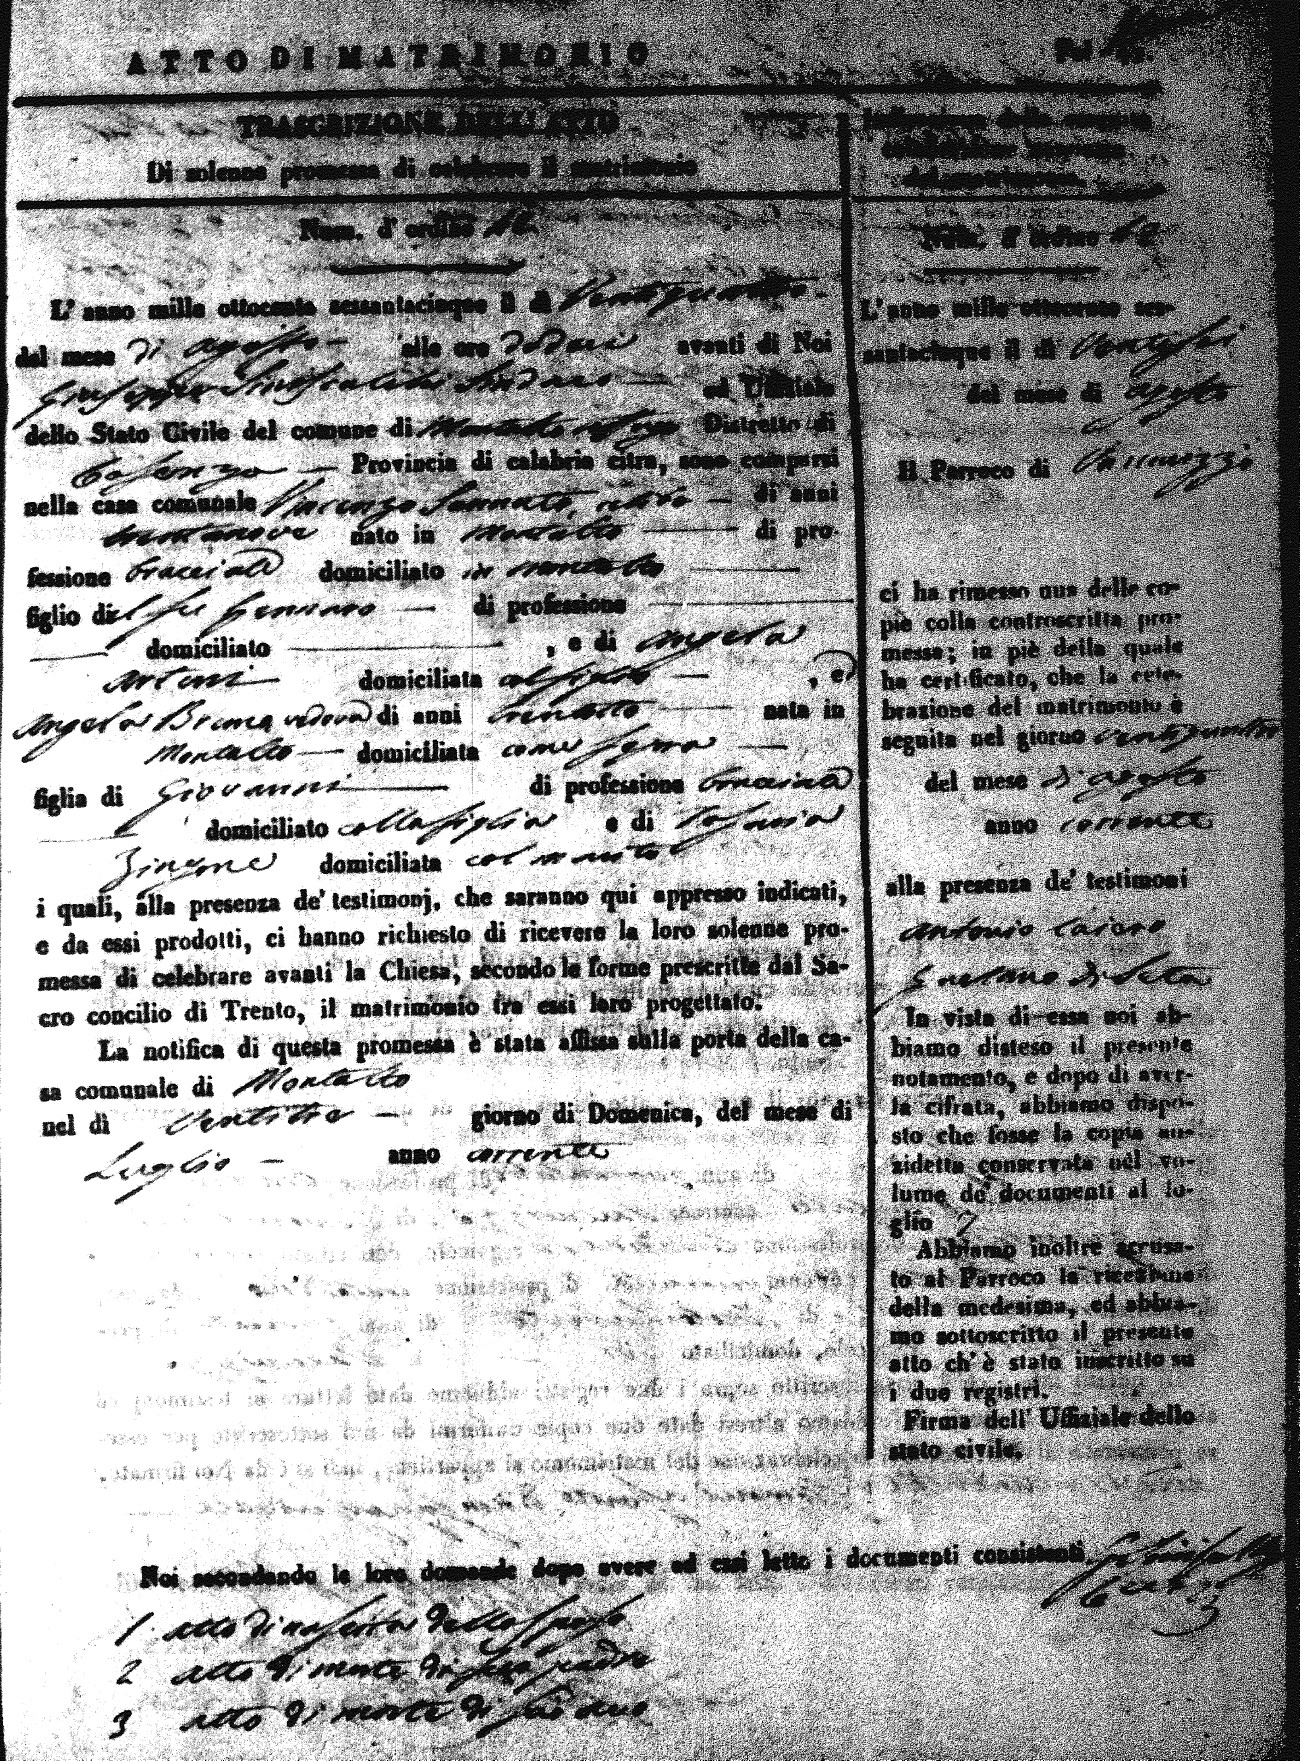 ATTO DI MATRIMONIO
Fol.
TRASCRIZIONE DELL' ATTO
Di solenne promessa di celebrare il matrimonio
Num. d' ordine
L' anno mille ottocento sessantacinque il dì Ventiquattro
dal mese di agosto alle ore dodeci avanti di Noi
Giuseppe Siniscalchi Sindaco ed Uffiziale
dello Stato Civile del comune di Montalto uffugo Distretto di
Cosenza Provincia di calabria citra, sono comparsi
nella casa comunale Vincenzo Sannuto, celibe di anni
trentanove nato in Montalto di pro-
fessione bracciale domiciliato in montalto
figlio di del fu Gennaro di professione
domiciliato , e di Angela
Artuni domiciliata col figlio , ed
Angela Bruno vedova di anni trentotto nata in
Montalto domiciliata come sopra
figlia di Giovanni di professione bracciale
domiciliato colla figlia e di Rosaria
Zingone domiciliata col marito
i quali, alla presenza de' testimonj, che saranno qui appresso indicati,
e da essi prodotti, ci hanno richiesto di ricevere la loro solenne pro-
messa di celebrare avanti la Chiesa, secondo le forme prescritte dal Sa-
cro concilio di Trento, il matrimonio tra essi loro progettato.
La notifica di questa promessa è stata affissa sulla porta della ca-
sa comunale di Montalto
nel dì Ventitre giorno di Domenica, del mese di
Luglio anno corrente
Noi secondando le loro domande dopo avere ad essi letto i documenti consistenti
1. atto di nascita dello sposo
2 atto di morte di suo padre
3 atto di morte di suo avo
Indicazione della seguita
celebrazione
del matrimonio.
Num. d' ordine 42
L' anno mille ottocento ses-
santacinque il dì Ventisei
del mese di agosto
Il Parroco di Vaccarizzo
ci ha rimesso una delle co-
pie colla controscritta pro-
messa; in piè della quale
ha certificato, che la cele-
brazione del matrimonio è
seguita nel giorno ventiquattro
del mese di agosto
anno corrente
alla presenza de' testimoni
Antonio Caiero
Gaetano di Seta
In vista di essa noi ab-
biamo disteso il presente
notamento, e dopo di aver-
la cifrata, abbiamo dispo-
sto che fosse la copia an-
zidetta conservata nel vo-
lume de' documenti al fo-
glio 7
Abbiamo inoltre accusa-
to al Parroco la ricezione
della medesima, ed abbia-
mo sottoscritto il presente
atto ch' è stato inscritto su
i due registri.
Firma dell' Uffiziale dello
stato civile.